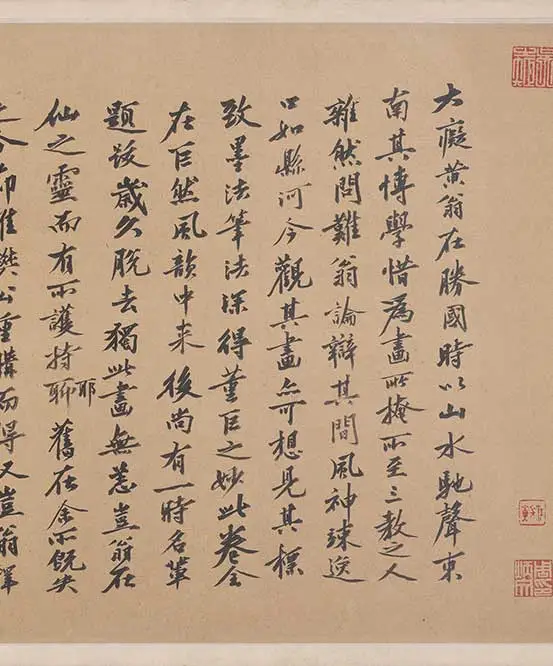 大癡黃翁在勝國時以山水馳聲東
南其博學惜為畫所掩所至三教之人
雜然問難翁論辯其間風神竦逸
口如縣河今觀其畫亦可想見其標
致墨法筆法深得董巨之妙此卷全
在巨然風韻中来後尚有一時名輩
題跋歲久脫去獨此畫無恙豈翁在
仙之靈而有所護持聊耶舊在余所既失
之今節推樊公重購而得又豈翁擇